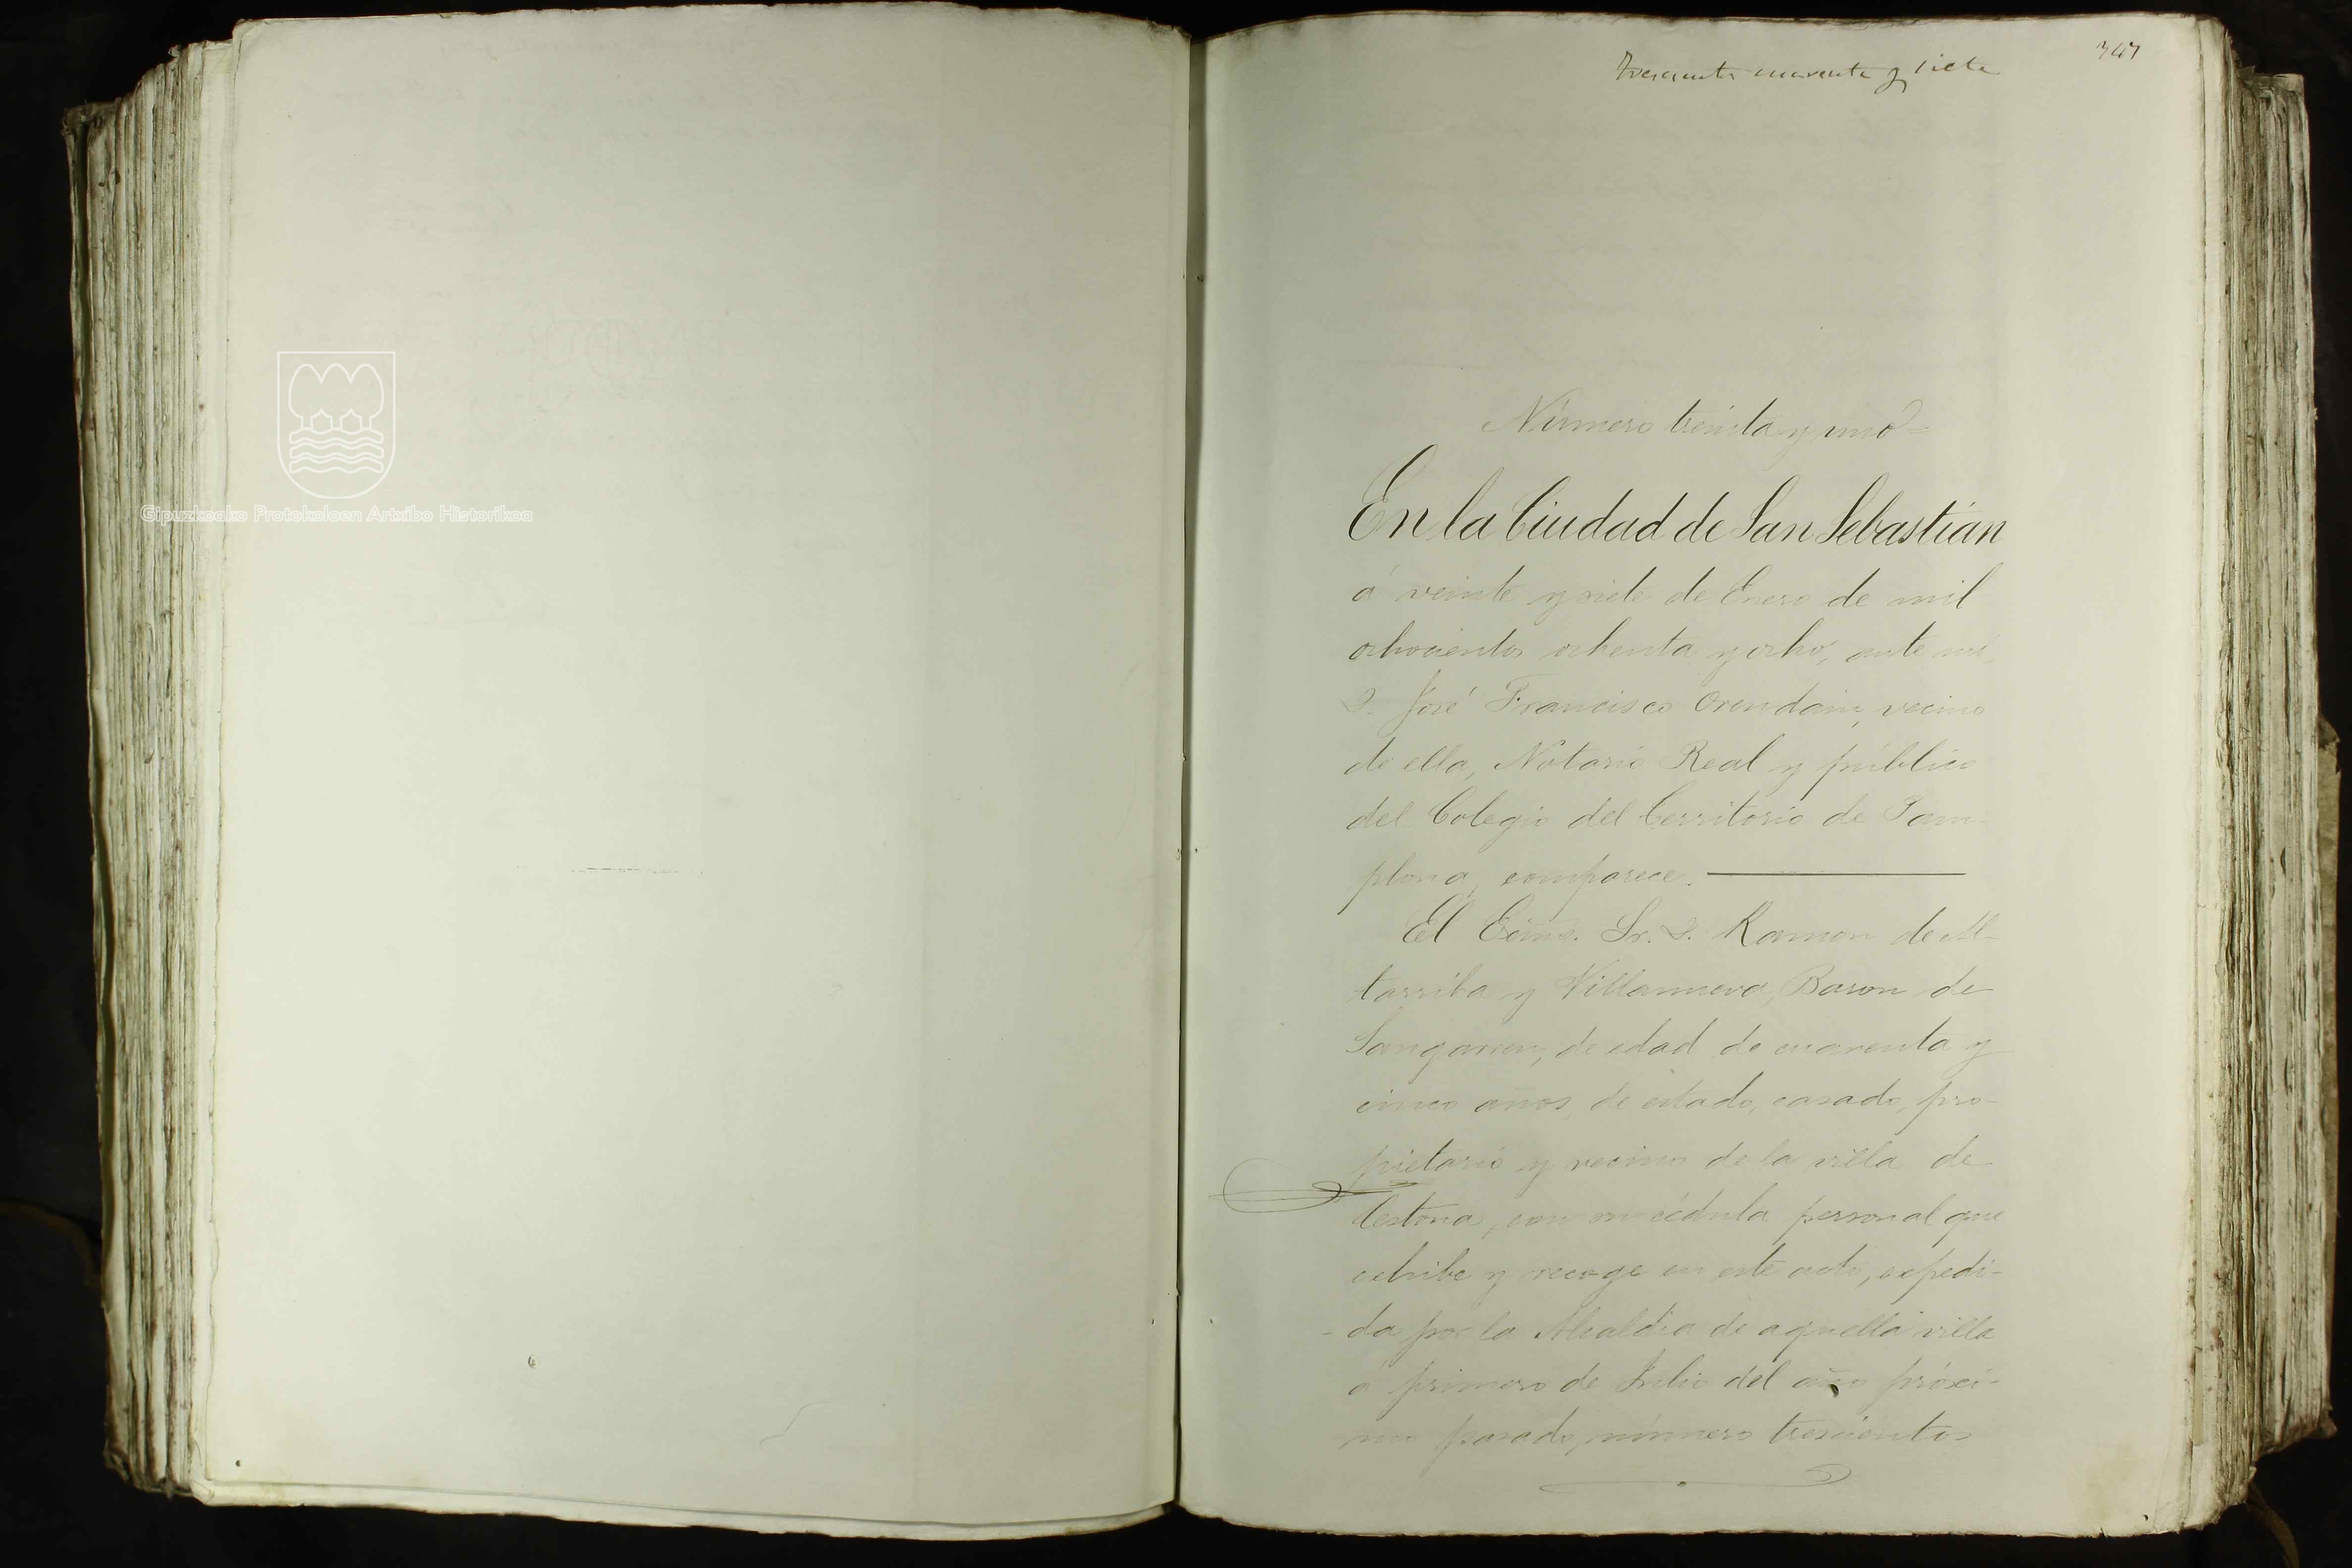 Gipuzkoako Protokoloen Artxibo Historikoa
347
Trescientos cuarenta y siete
Número treinta y uno=
En la Ciudad de San Sebastián
á veinte y siete de Enero de mil
ochocientos ochenta y ocho, ante mi,
D. José Francisco Orendain, vecino
de ella, Notario Real y público
del Colegio del Territorio de Pam-
plona, comparece.
El Exmo. Sr. D. Ramon de Al-
tarriba y Villanueva, Baron de
Sangarren, de edad de cuarenta y
cinco años, de estado, casado, pro-
pietario y vecino de la villa de
Cestona, con su cédula personal que
exhibe y recoge en este acto, expedi-
-da por la Alcaldia de aquella villa
á primero de Julio del año próxi-
mo pasado, número trescientos